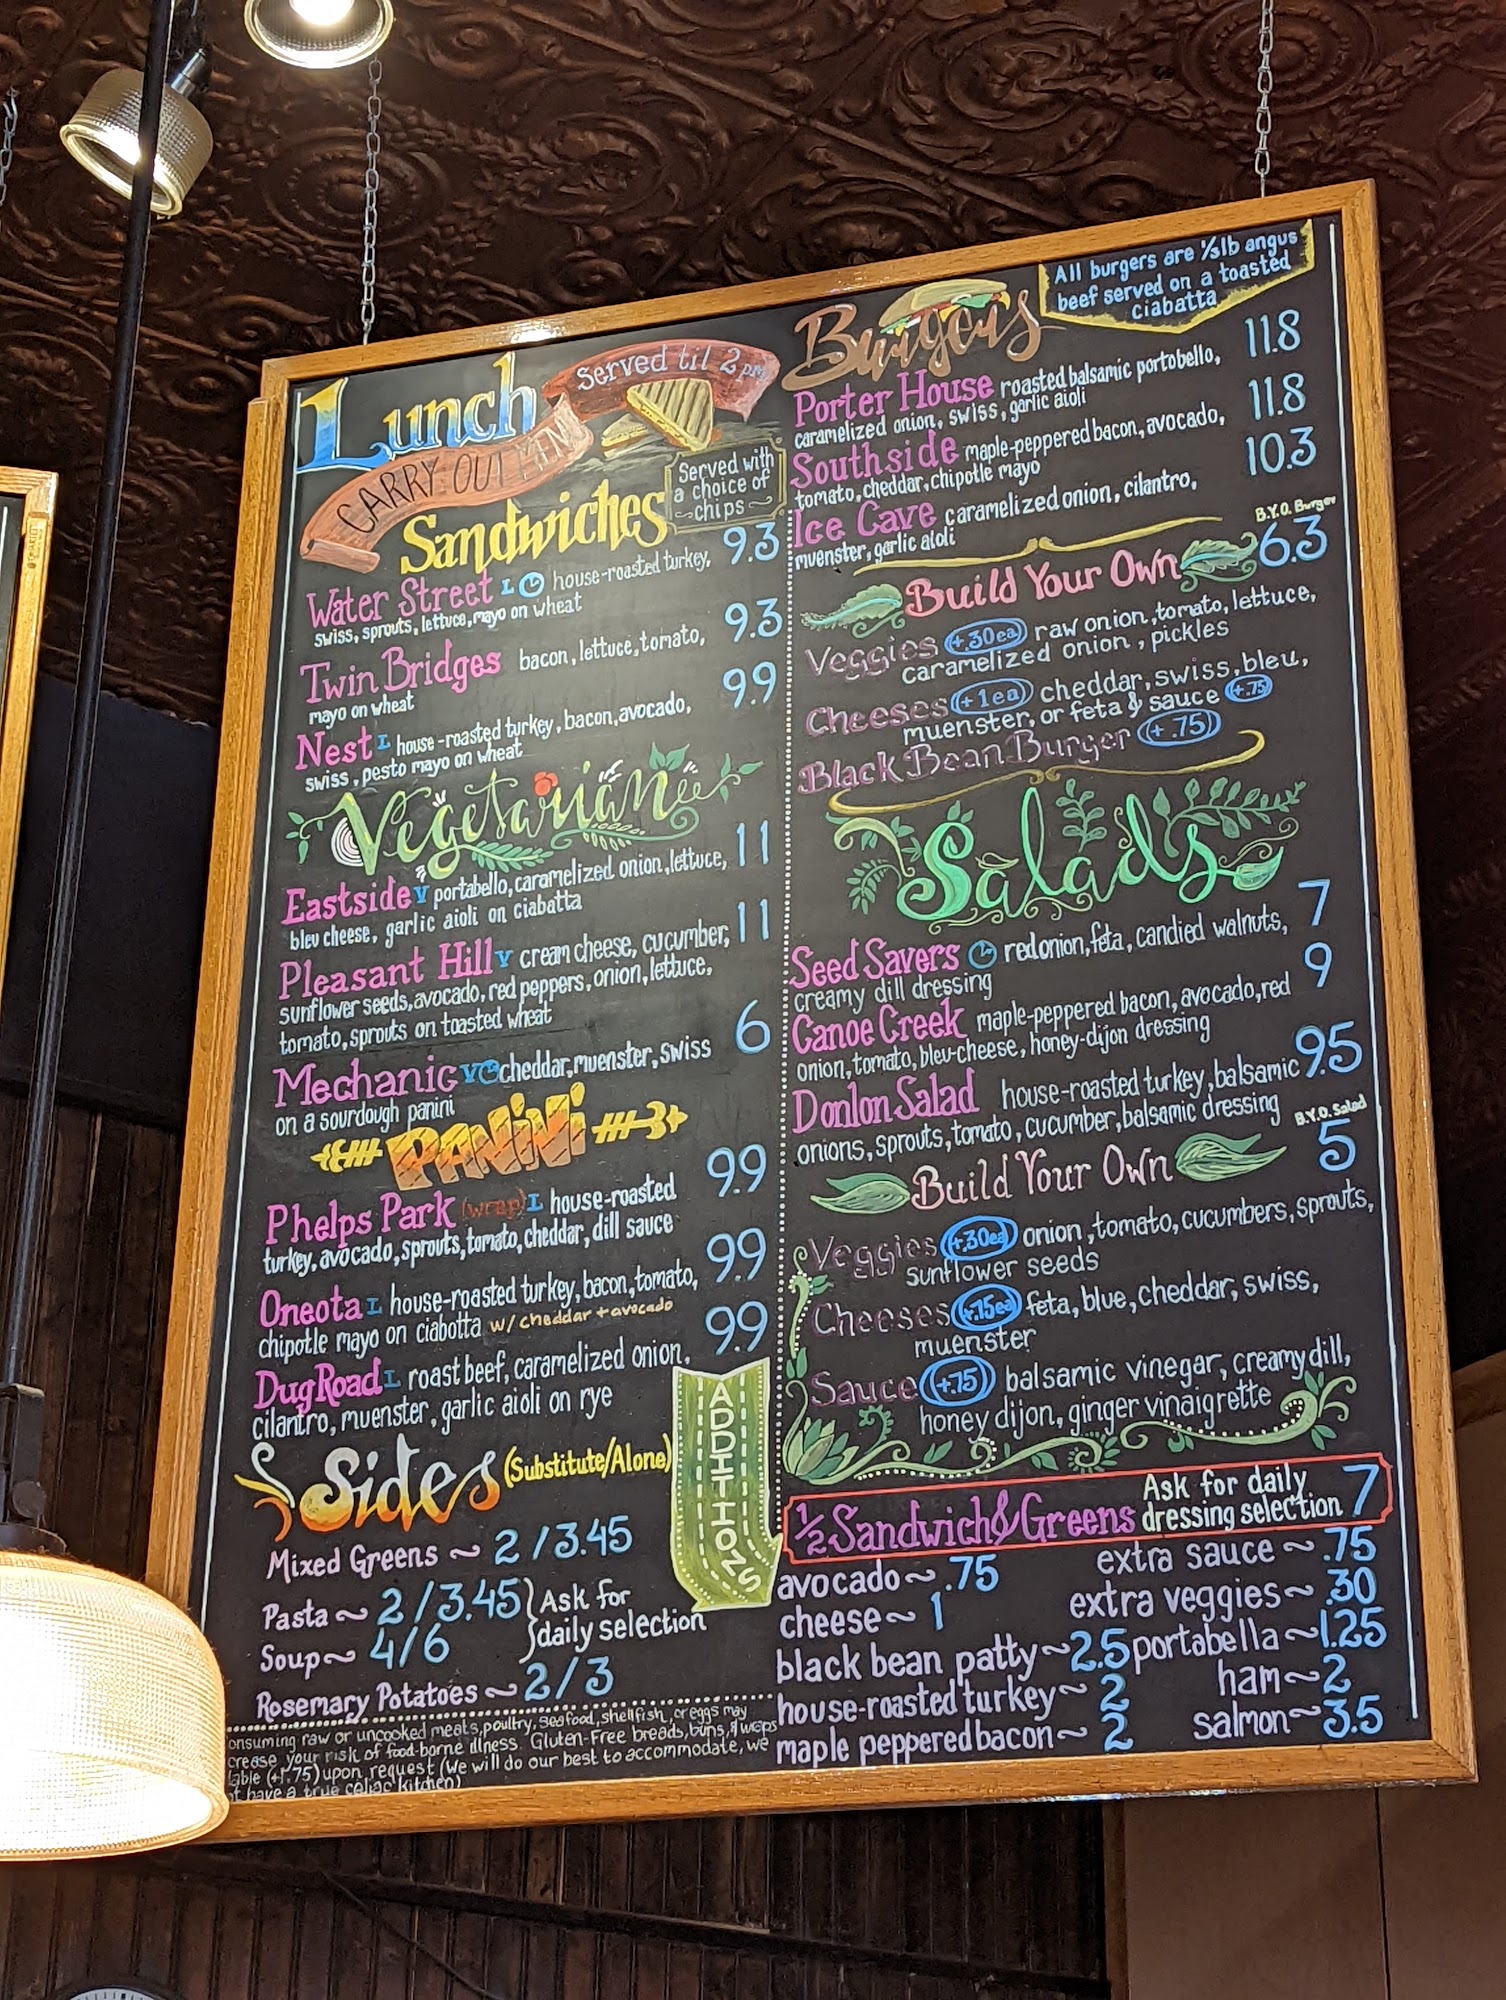 Lunch
Served til 2pm
CARRY OUT MEN
Sandwiches
Served with
a choice of
chips
Water Street L house-roasted turkey, 9.3
swiss, sprouts, lettuce, mayo on wheat
Twin Bridges bacon, lettuce, tomato, 9.3
mayo on wheat
Nest L house-roasted turkey, bacon, avocado, 9.9
swiss, pesto mayo on wheat
Vegetarian
Eastside V portabello, caramelized onion, lettuce, 11
bleu cheese, garlic aioli on ciabatta
Pleasant Hill V cream cheese, cucumber, 11
sunflower seeds, avocado, red peppers, onion, lettuce,
tomato, sprouts on toasted wheat
Mechanic V cheddar, muenster, swiss 6
on a sourdough panini
PANiNi
Phelps Park (wrap) L house-roasted 9.9
turkey, avocado, sprouts, tomato, cheddar, dill sauce
Oneota L house-roasted turkey, bacon, tomato, 9.9
chipotle mayo on ciabotta w/ cheddar + avocado
Dug Road L roast beef, caramelized onion, 9.9
cilantro, muenster, garlic aioli on rye
Sides (Substitute/Alone)
Mixed Greens ~ 2 / 3.45
Pasta ~ 2 / 3.45 } Ask for
Soup ~ 4/6 daily selection
Rosemary Potatoes ~ 2/3
onsuming raw or uncooked meats, poultry, seafood, shellfish, or eggs may
crease your risk of food-borne illness. Gluten-Free breads, buns, & wraps
lable (+1.75) upon request (We will do our best to accommodate, we
ot have a true celiac kitchen)
Burgers
All burgers are 1/3lb angus
beef served on a toasted
ciabatta
Porter House roasted balsamic portobello, 11.8
caramelized onion, swiss, garlic aioli
Southside maple-peppered bacon, avocado, 11.8
tomato, cheddar, chipotle mayo
Ice Cave caramelized onion, cilantro, 10.3
muenster, garlic aioli
B.Y.O. Burger
Build Your Own 6.3
Veggies (+.30ea) raw onion, tomato, lettuce,
caramelized onion, pickles
Cheeses (+1ea) cheddar, swiss, bleu,
muenster, or feta & sauce (+.75)
Black Bean Burger (+.75)
Salads
Seed Savers red onion, feta, candied walnuts, 7
creamy dill dressing
Canoe Creek maple-peppered bacon, avocado, red 9
onion, tomato, bleu-cheese, honey-dijon dressing
Donlon Salad house-roasted turkey, balsamic 9.5
onions, sprouts, tomato, cucumber, balsamic dressing
B.Y.O. Salad
Build Your Own 5
Veggies (+.30ea) onion, tomato, cucumbers, sprouts,
sunflower seeds
Cheeses (+.75ea) feta, blue, cheddar, swiss,
muenster
Sauce (+.75) balsamic vinegar, creamy dill,
honey dijon, ginger vinaigrette
1/2 Sandwich & Greens Ask for daily 7
dressing selection
ADDITIONS
avocado ~ .75
cheese ~ 1
black bean patty ~ 2.5
house-roasted turkey ~ 2
maple peppered bacon ~ 2
extra sauce ~ .75
extra veggies ~ .30
portabella ~ 1.25
ham ~ 2
salmon ~ 3.5